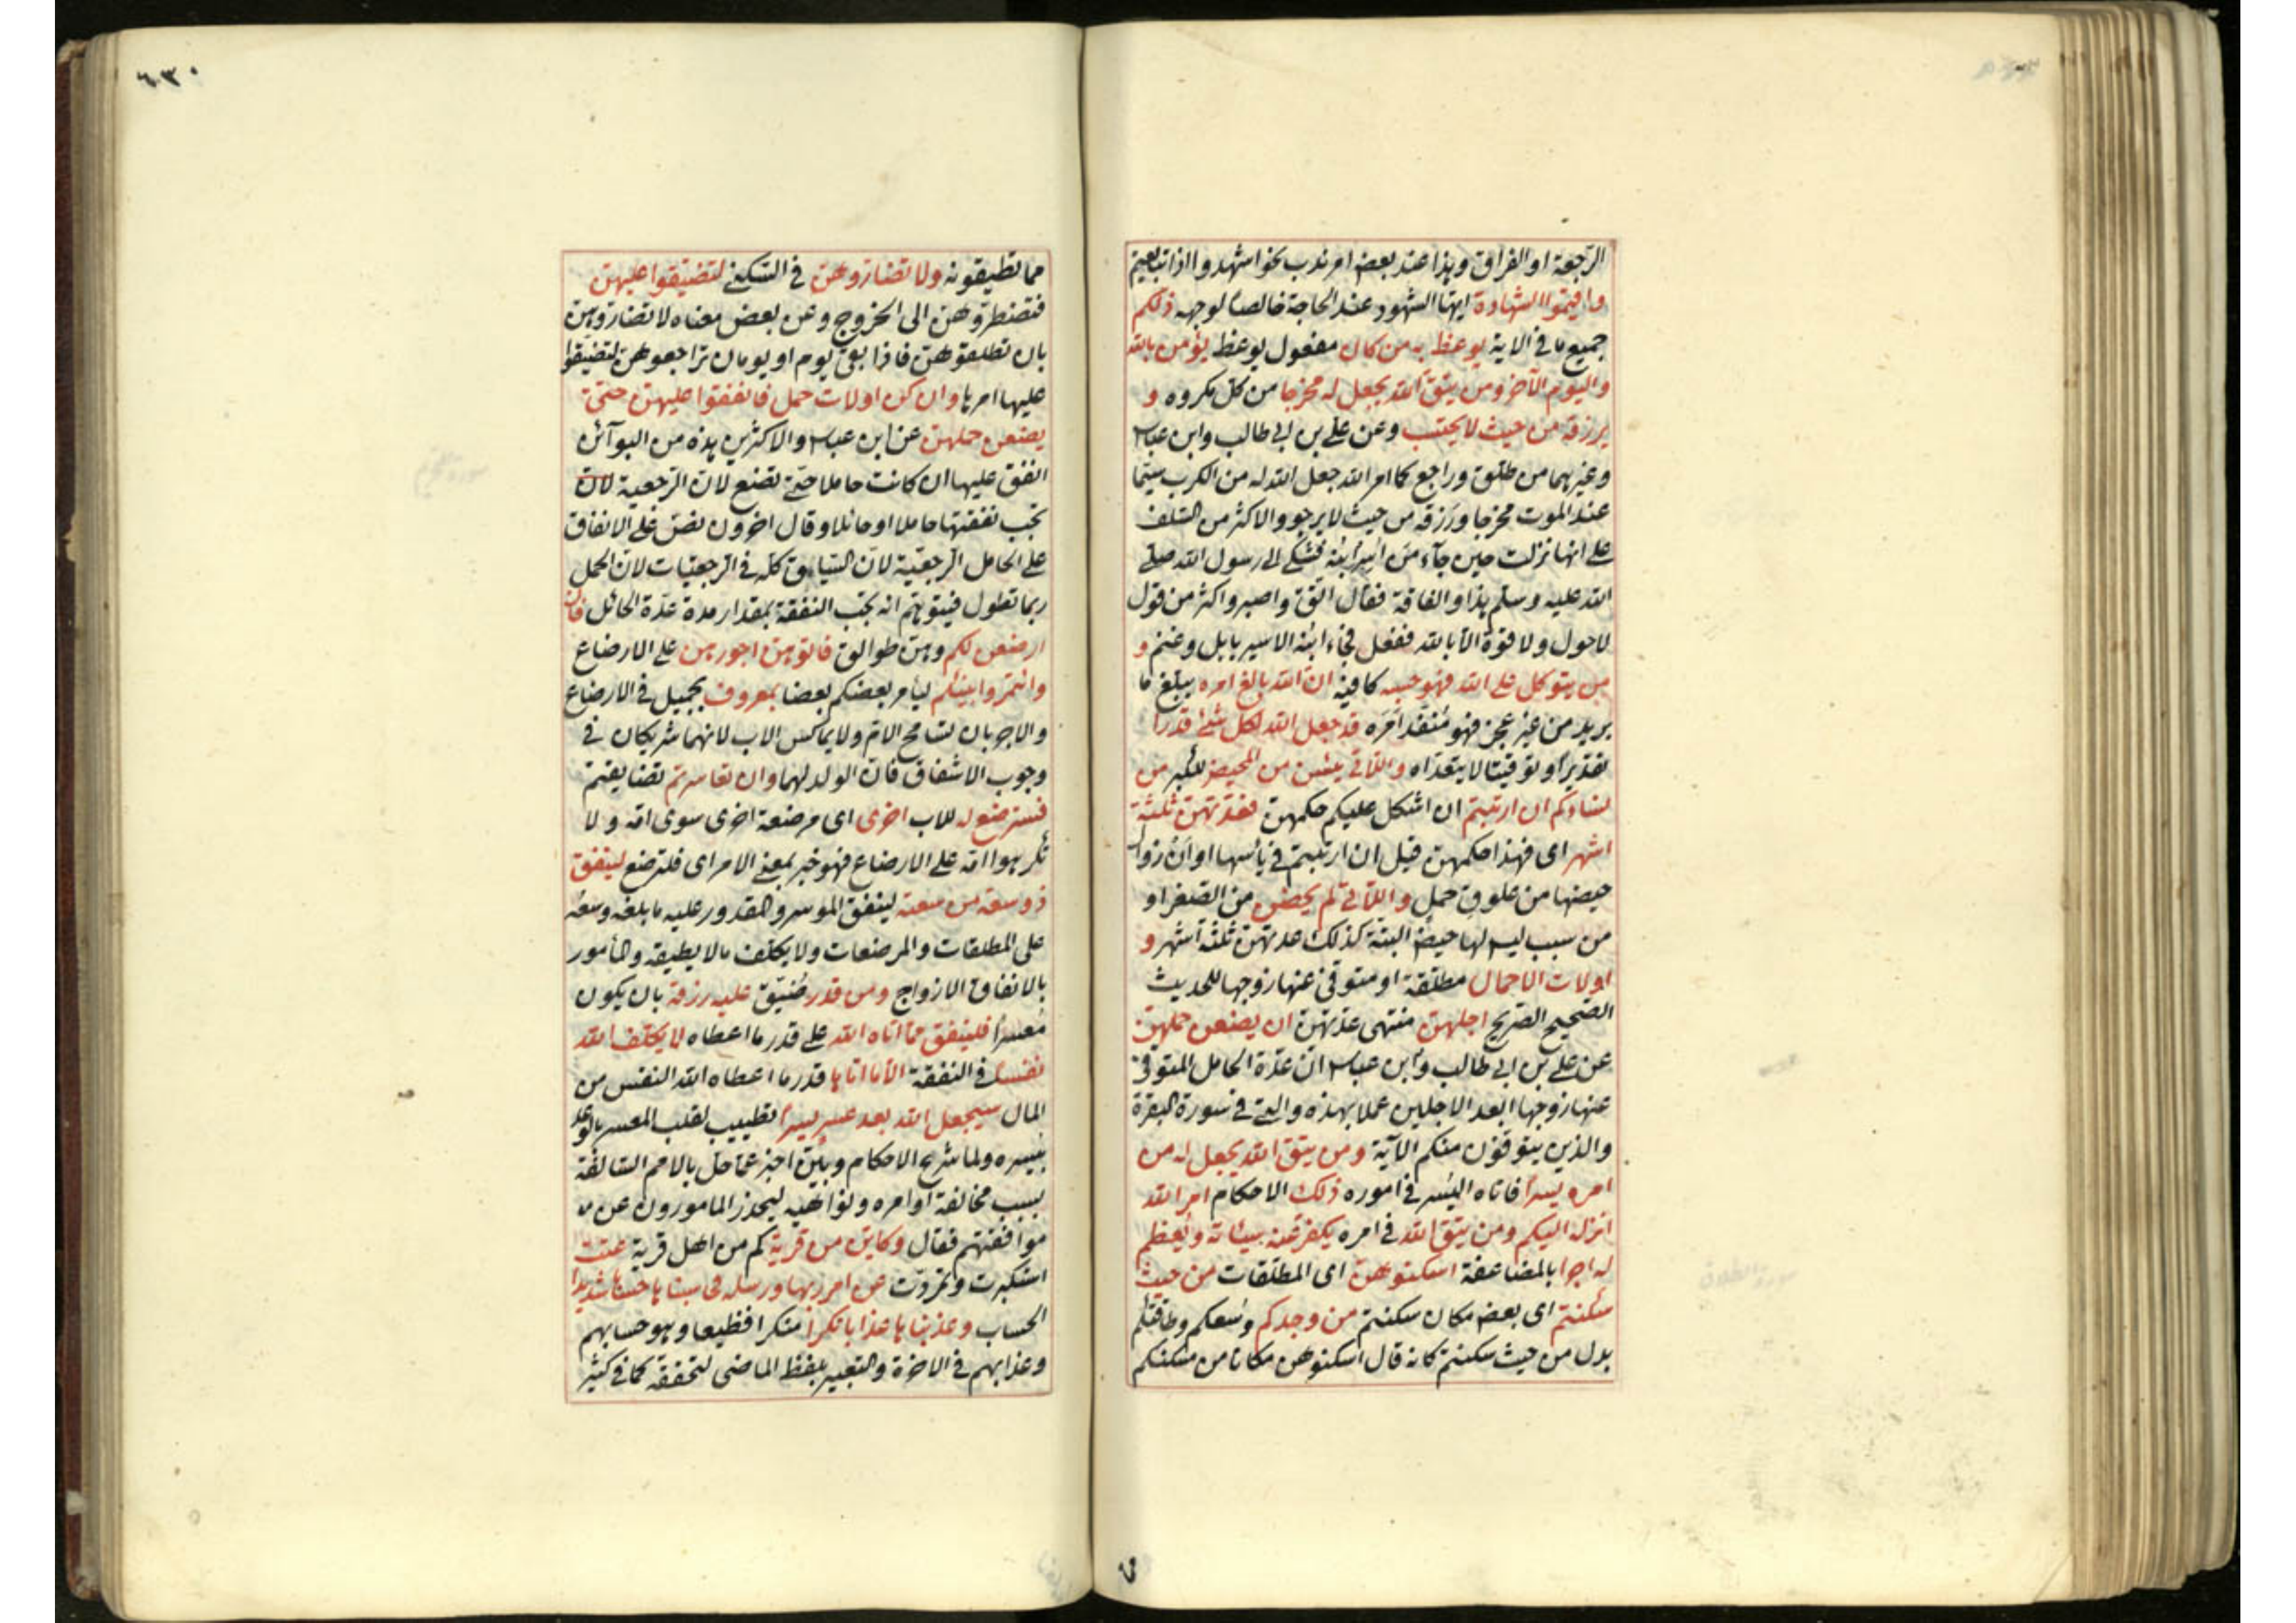 الرجعة او الفراق وهذا عند بعض امر ندب نحو اشهدوا اذا تبايعتم
واقيموا الشهادة ايها الشهود عند الحاجة خالصا لوجهه ذلكم
جميع ما في الاية يوعظ به من كان مفعول يوعظ يؤمن بالله
واليوم الآخر ومن يتق الله يجعل له مخرجا من كل مكروه و
يرزقه من حيث لا يحتسب وعن علي بن ابي طالب وابن عباس
وغيرهما من طلق وراجع كما امر الله جعل الله له من الكرب سيما
عند الموت مخرجا ورزقه من حيث لا يرجو والاكثر من السلف
على انها نزلت حين جآء من اسر ابنه فشكى الى رسول الله صلى
الله عليه وسلم هذا والفاقة فقال اتق واصبر واكثر من قول
لا حول ولا قوة الا بالله ففعل فجاء ابنه الاسير بابل وغنم و
من يتوكل على الله فهو حسبه كافيه ان الله بالغ امره يبلغ ما
يريد من غير عجز فهو منفذ امره قد جعل الله لكل شئ قدرا
تقديرا وتوقيتا لا يتعداه واللائي يئسن من المحيض للكبر من
نساءكم ان ارتبتم ان اشكل عليكم حكمهن فعدتهن ثلثة
اشهر اى فهذا حكمهن قيل ان ارتبتم في يأسها او ان زوال
حيضها من علوق حمل واللائي لم يحضن من الصغر او
من سبب ليس لها حيض البتة كذلك عدتهن ثلثة اشهر و
اولات الاحمال مطلقة او متوفى عنها زوجها للحديث
الصحيح الصريح اجلهن منتهى عدتهن ان يضعن حملهن
عن علي بن ابي طالب وابن عباس ان عدة الحامل المتوفى
عنها زوجها ابعد الاجلين عملا بهذه والتي في سورة البقرة
والذين يتوفون منكم الآية ومن يتق الله يجعل له من
امره يسرا فاتاه اليسر في اموره ذلك الاحكام امر الله
انزله اليكم ومن يتق الله في امره يكفر عنه سيئاته ويعظم
له اجرا بالمضاعفة اسكنوهن اى المطلقات من حيث
سكنتم اى بعض مكان سكنتم من وجدكم وسعكم وطاقتكم
بدل من حيث سكنتم كانه قال اسكنوهن مكانا من مسكنكم
٦٣٠
مما تطيقونه ولا تضاروهن في السكنى لتضيقوا عليهن
فتضطروهن الى الخروج وعن بعض معناه لا تضاروهن
بان تطلقوهن فاذا بقى يوم او يومان تراجعوهن لتضيقوا
عليها امرها وان كن اولات حمل فانفقوا عليهن حتى
يضعن حملهن عن ابن عباس والاكثرين هذه من البوآئن
انفق عليها ان كانت حاملا حتى تضع لان الرجعية لان
تجب نفقتها حاملا او حائلا وقال اخرون نص على الانفاق
على الحامل الرجعية لان السياق كله في الرجعيات لان الحمل
ربما تطول فيتوهم انه تجب النفقة بمقدار مدة عدة الحائل فان
ارضعن لكم وهن طوالق فاتوهن اجورهن على الارضاع
وائتمروا بينكم ليأمر بعضكم بعضا بمعروف بجميل في الارضاع
والاجر بان تسامح الام ولا يماكس الاب لانهما شريكان في
وجوب الاشفاق فان الولد لهما وان تعاسرتم تضايقتم
فسترضع له للاب اخرى اى مرضعة اخرى سوى امه ولا
تكرهوا امه على الارضاع فهو خبر بمعنى الامر اى فلترضع لينفق
ذو سعة من سعته لينفق الموسر والمقدور عليه ما بلغه وسعه
على المطلقات والمرضعات ولا يكلف مالا يطيقه والمأمور
بالانفاق الازواج ومن قدر ضيق عليه رزقه بان يكون
معسرا فلينفق مما اتاه الله على قدر ما اعطاه لا يكلف الله
نفسا في النفقة الا ما اتاها قدر ما اعطاه الله النفس من
المال سيجعل الله بعد عسر يسرا تطييب لقلب المعسر بالوعد
بيسره ولما شرح الاحكام وبين اخبر عما حل بالامم السالفة
بسبب مخالفة اوامره ونواهيه ليحذر المأمورون عن
موافقتهم فقال وكاين من قرية كم من اهل قرية عتت
استكبرت وتمردت عن امر ربها ورسله فحاسبناها حسابا شديدا
الحساب وعذبناها عذابا نكرا منكرا فظيعا وهو حسابهم
وعذابهم في الاخرة والتعبير بلفظ الماضى لتحققه كما في كثير